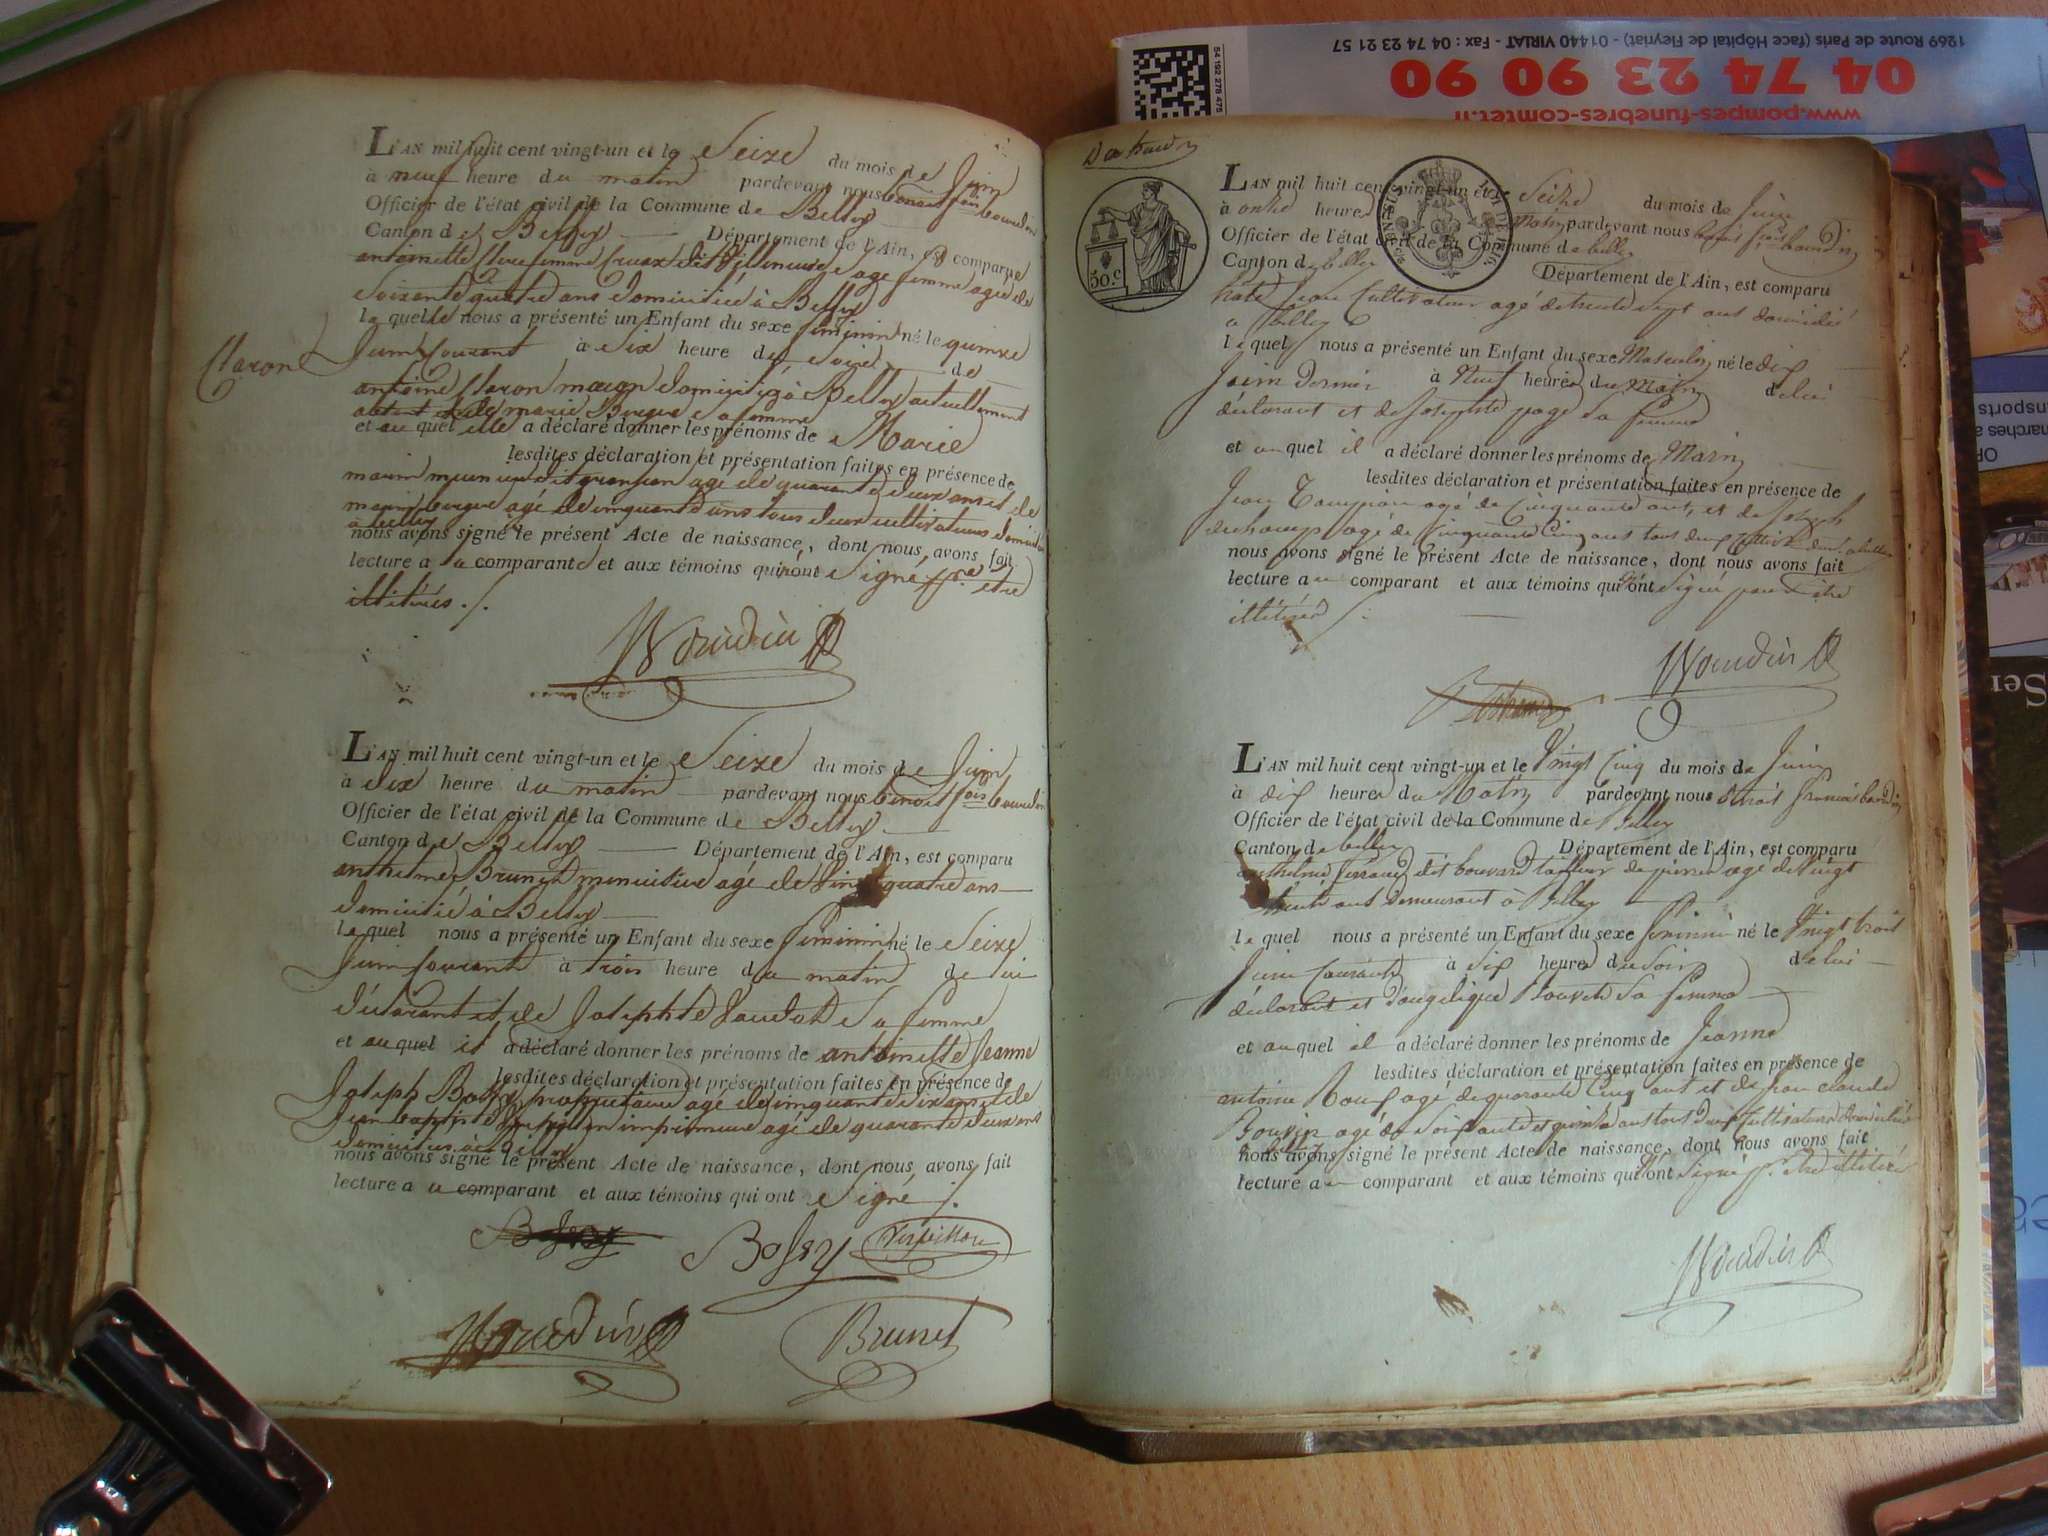 L'AN mil huit cent vingt-un et le Seize du mois de Juin
à neuf heure du matin pardevant nous benoit fois bourdin
Officier de l'état civil de la Commune de Belley
Canton de Belley Département de l'Ain, est comparue
antoinette femme dit agée de
Soixante quatre ans domiciliée à Belley
la quelle nous a présenté un Enfant du sexe feminin né le quinze
Claron
Juin Courant à Six heure du Soir de
antoine Claron maçon domicilié à Belley actuellement
absent et de marie sa femme
et au quel elle a déclaré donner les prénoms de Marie
lesdites déclaration et présentation faites en présence de
marin dit agé de quarante deux ans et de
marin agé de cinquante ans tous deux cultivateurs domiciliés
à Belley
nous avons signé le présent Acte de naissance, dont nous avons fait
lecture a la comparante et aux témoins qui n'ont Signé pr. être
illitérés ./.
L'AN mil huit cent vingt-un et le Seize du mois de Juin
à dix heure du matin pardevant nous benoit fois bourdin
Officier de l'état civil de la Commune de Belley
Canton de Belley Département de l'Ain, est comparu
anthelme Brunet menuisier agé de vingt quatre ans
domicilié à Belley
le quel nous a présenté un Enfant du sexe feminin né le Seize
Juin Courant à trois heure du matin de lui
déclarant et de Josephte sa femme
et au quel il a déclaré donner les prénoms de antoinette Jeanne
lesdites déclaration et présentation faites en présence de
Joseph Bossy propriétaire agé de cinquante dix ans et de
Jean baptiste imprimeur agé de quarante deux ans
domiciliés à Belley
nous avons signé le présent Acte de naissance, dont nous avons fait
lecture a u comparant et aux témoins qui ont Signé ./.
Bossy
Bossy Verpillon
Bourdin
Brunet
50.c
L'AN mil huit cent vingt-un et le Seize du mois de Juin
à onze heures Matin pardevant nous benoit fois bourdin
Officier de l'état civil de la Commune de belley
Canton de belley Département de l'Ain, est comparu
Jean Cultivateur agé de trente sept ans domicilié
a Belley
le quel nous a présenté un Enfant du sexe Masculin né le dix
Juin dernier à Neuf heures du Matin de lui
déclarant et de Josephte page sa femme
et au quel il a déclaré donner les prénoms de Marin
lesdites déclaration et présentation faites en présence de
Jean agé de Cinquante ans, et de Joseph
duchamp agé de Cinquante Cinq ans tous deux
nous avons signé le présent Acte de naissance, dont nous avons fait
lecture a u comparant et aux témoins qui n'ont Signé pour être
illitérés ./.
Bourdin
L'AN mil huit cent vingt-un et le Vingt Cinq du mois de Juin
à dix heures du Matin pardevant nous benoit francois bourdin
Officier de l'état civil de la Commune de Belley
Canton de belley Département de l'Ain, est comparu
anthelme dit bouvard tailleur de pierres agé de Vingt
ans demeurant à Belley
le quel nous a présenté un Enfant du sexe feminin né le Vingt trois
Juin Courant à dix heures du Soir de lui
déclarant et d'angelique Bouvet sa femme
et au quel il a déclaré donner les prénoms de Jeanne
lesdites déclaration et présentation faites en présence de
antoine Roux agé de quarante Cinq ans et de Jean claude
Bouvier agé de Soixante et quinze ans tous deux Cultivateurs domiciliés
a belley
nous avons signé le présent Acte de naissance, dont nous avons fait
lecture a u comparant et aux témoins qui n'ont Signé pr. être illitérés
Bourdin
1269 Route de Paris (face Hôpital de Fleyriat) - 01440 VIRIAT - Fax : 04 74 23 21 57
04 74 23 90 90
www.pompes-funebres-comtet.fr